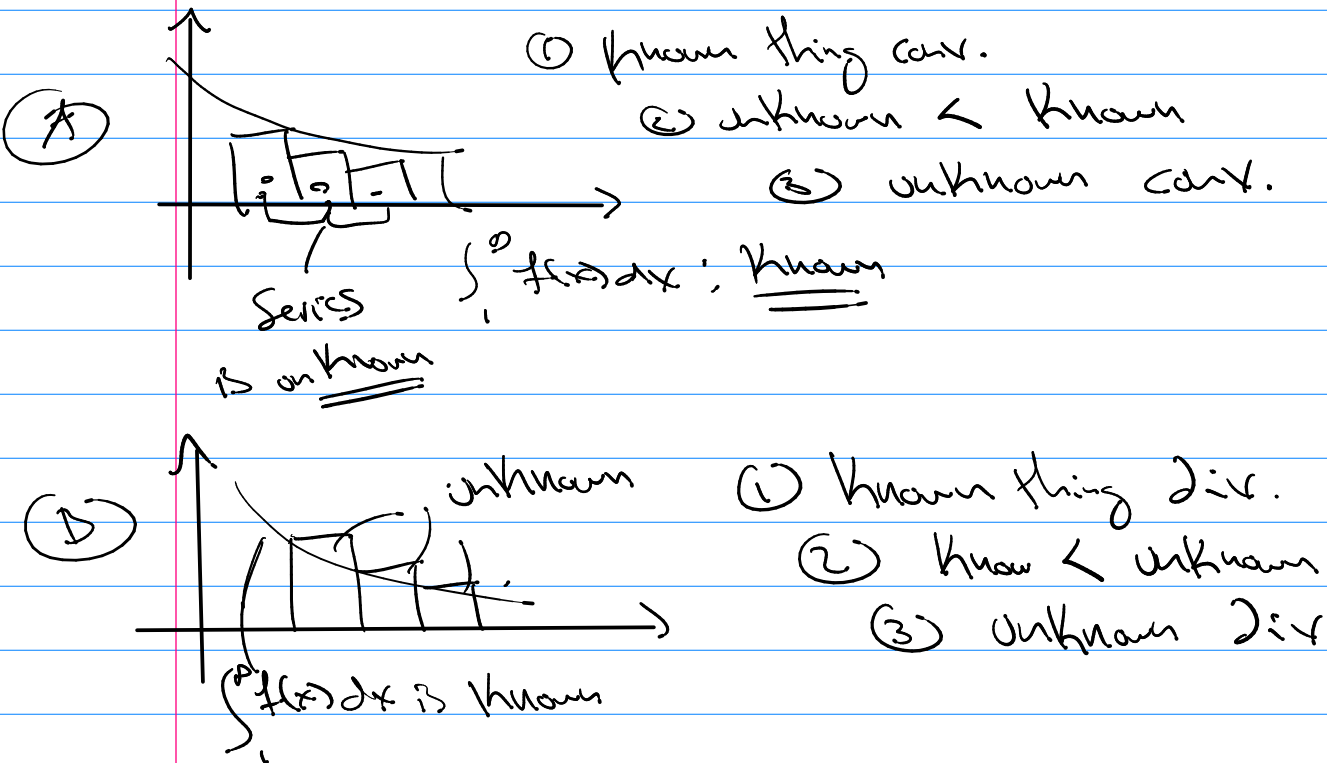 A
① Known thing conv.
② unknown < Known
③ unknown conv.
∫₁^∞ f(x) dx : Known
Series
is unknown
B
unknown
① Known thing div.
② Know < unknown
③ unknown div
∫₁^∞ f(x) dx is Known